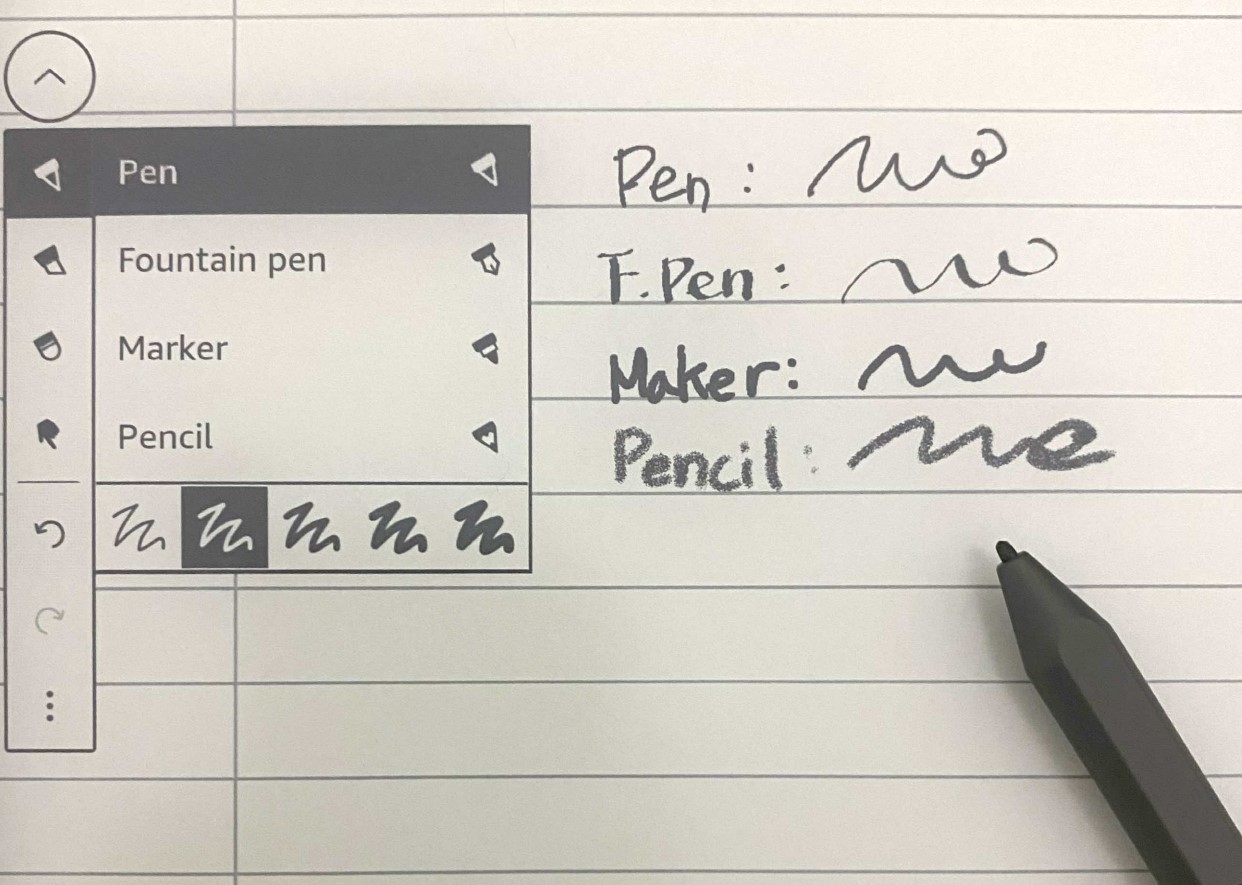 Pen
Fountain pen
Marker
Pencil
Pen :
F.Pen :
Maker:
Pencil :